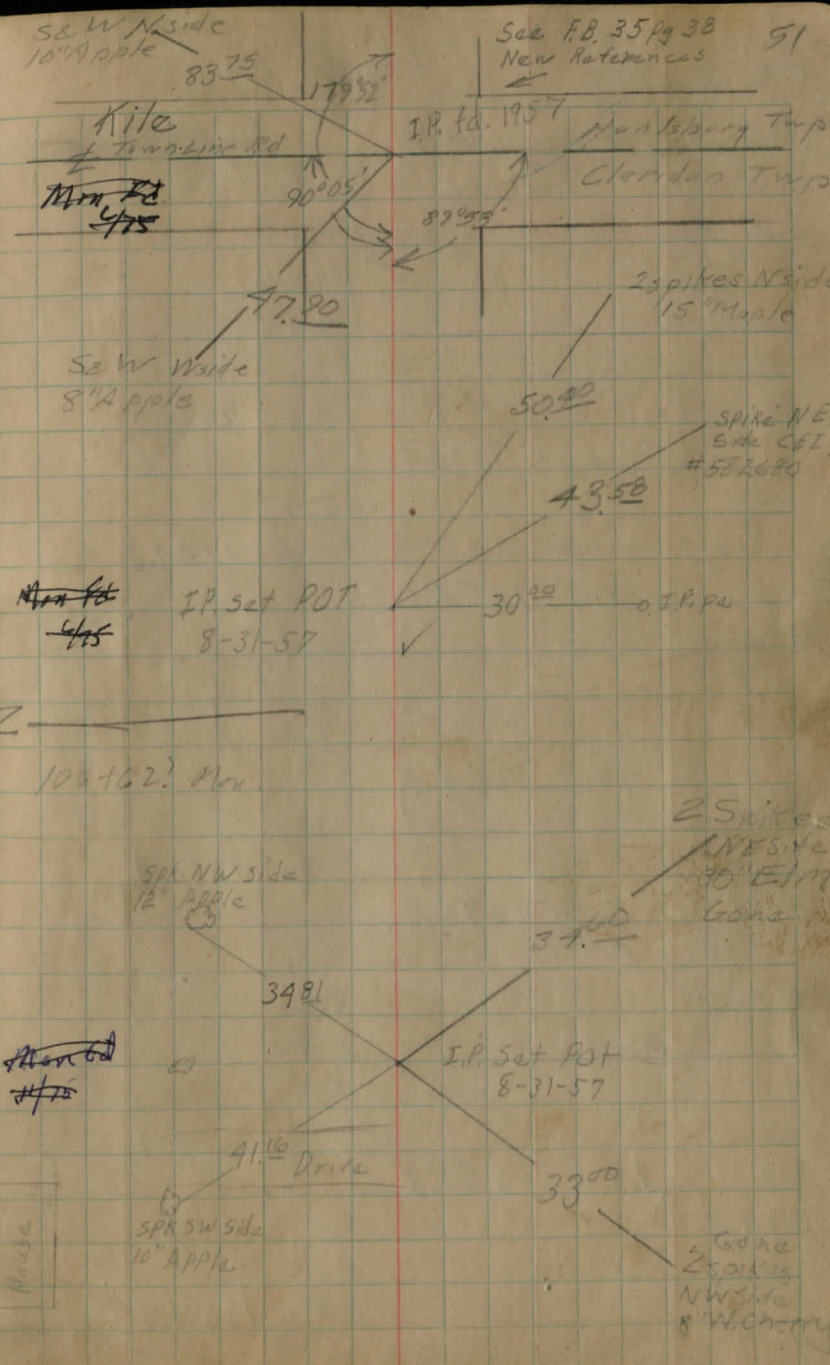 S & W N side
10" Apple
83 75
See F.B. 35 Pg 38
New References
51
179°52'
Kile
I.P. fd. 1957
Huntsburg Twp
Town-Line Rd
Claridon Twp
Mon Fd
6/75
90°05'
89°53'
47.90
2 spikes N side
15" Maple
S & W W side
8" Apple
50.40
spike NE
side CEI
#582680
43.58
Mon Fd
6/75
I.P. Set POT
8-31-57
30 00
I.P.
106+62? Mon
2 Spikes
NE Side
30" Elm
Gone
spk NW side
12" Apple
34.60
34 81
Mon Fd
I.P. Set POT
8-31-57
41.16
Drive
33 00
spk SW side
10" Apple
House
Gone
2 spikes
NW side
8" W. Cherry